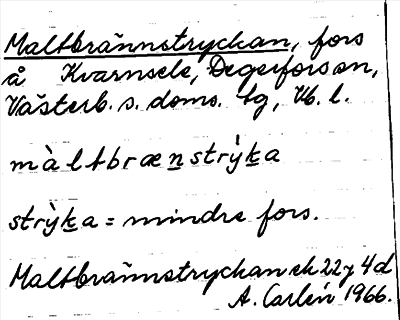 Maltbrännstryckan, fors
å Kvarnsele, Degerfors sn,
Västerb. s. doms. tg, Vb. l.
màltbrænstrỳka
strỳka = mindre fors.
Maltbrännstryckan ek 22 j 4 d
A. Carlén 1966.